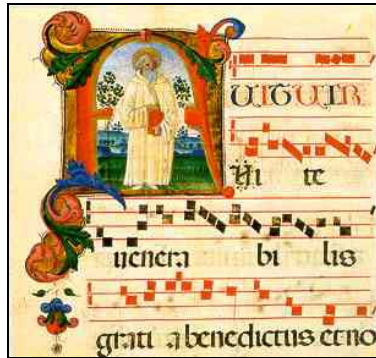 UIT UIR
Vi te
uenera bi lis
grati a benedictus et no